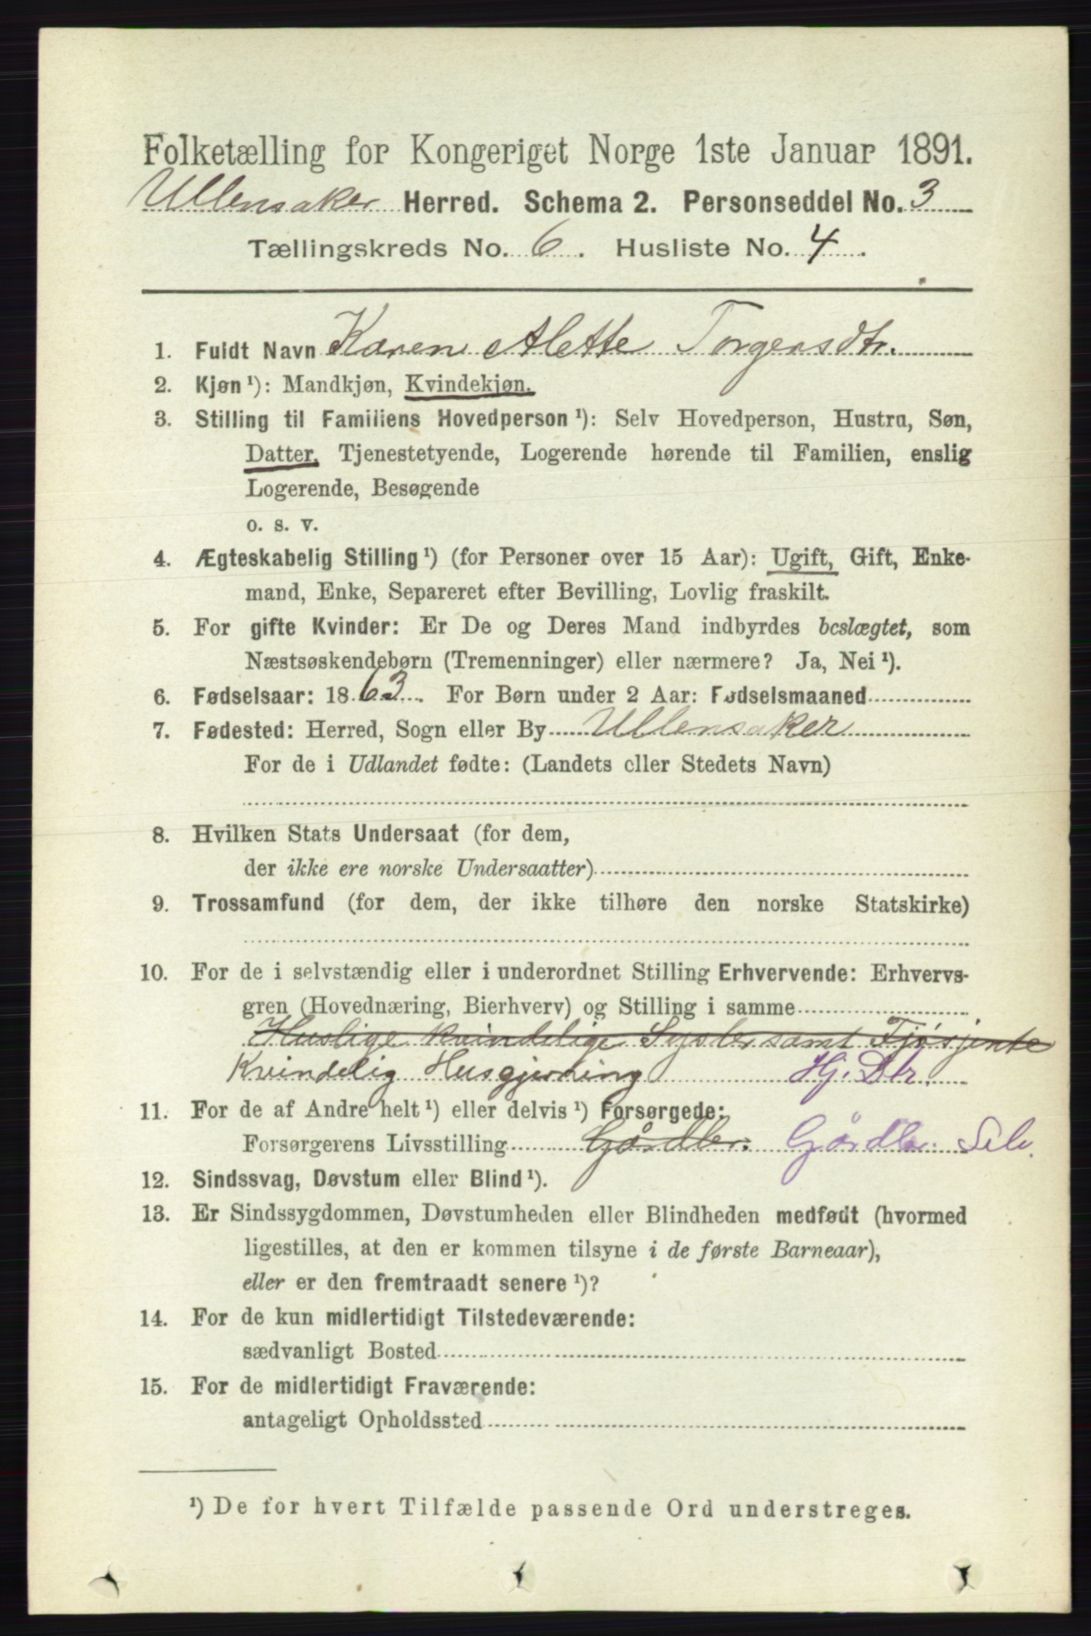 Folketælling for Kongeriget Norge 1ste Januar 1891.
Ullensaker Herred. Schema 2. Personseddel No. 3
Tællingskreds No. 6. Husliste No. 4.
1. Fuldt Navn Karen Alette Torgersdtr.
2. Kjøn ¹): Mandkjøn, Kvindekjøn.
3. Stilling til Familiens Hovedperson ¹): Selv Hovedperson, Hustru, Søn,
Datter, Tjenestetyende, Logerende hørende til Familien, enslig
Logerende, Besøgende
o. s. v.
4. Ægteskabelig Stilling ¹) (for Personer over 15 Aar): Ugift, Gift, Enke-
mand, Enke, Separeret efter Bevilling, Lovlig fraskilt.
5. For gifte Kvinder: Er De og Deres Mand indbyrdes beslægtet, som
Næstsøskendebørn (Tremenninger) eller nærmere? Ja, Nei ¹).
6. Fødselsaar: 1863. For Børn under 2 Aar: Fødselsmaaned
7. Fødested: Herred, Sogn eller By Ullensaker
For de i Udlandet fødte: (Landets eller Stedets Navn)
8. Hvilken Stats Undersaat (for dem,
der ikke ere norske Undersaatter)
9. Trossamfund (for dem, der ikke tilhøre den norske Statskirke)
10. For de i selvstændig eller i underordnet Stilling Erhvervende: Erhvervs-
gren (Hovednæring, Bierhverv) og Stilling i samme
Huslige kvindelige Sysler samt Fjøsjente
Kvindelig Husgjerning Hj. Dtr.
11. For de af Andre helt ¹) eller delvis ¹) Forsørgede:
Forsørgerens Livsstilling Gårdbr. Gårdbr. Selv.
12. Sindssvag, Døvstum eller Blind ¹).
13. Er Sindssygdommen, Døvstumheden eller Blindheden medfødt (hvormed
ligestilles, at den er kommen tilsyne i de første Barneaar),
eller er den fremtraadt senere ¹)?
14. For de kun midlertidigt Tilstedeværende:
sædvanligt Bosted
15. For de midlertidigt Fraværende:
antageligt Opholdssted
¹) De for hvert Tilfælde passende Ord understreges.